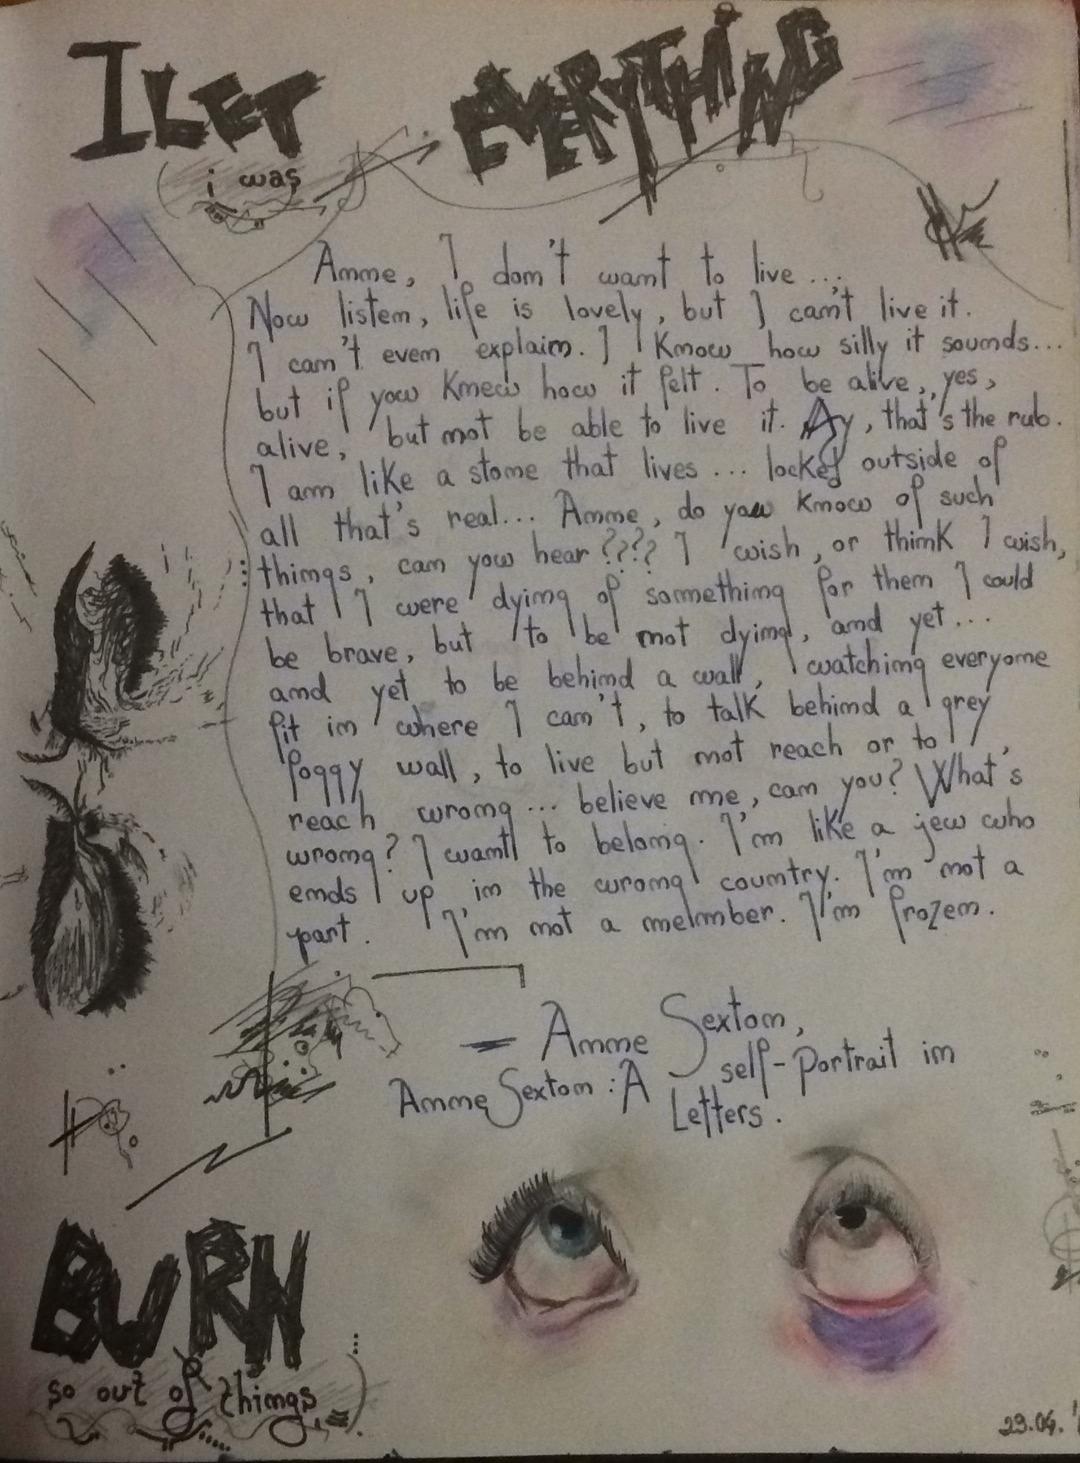 I LET EVERYTHING
i was
Anne, I don't want to live...
Now listen, life is lovely, but I can't live it.
I can't even explain. I Know how silly it sounds...
but if you Knew how it felt. To be alive, yes,
alive, but not be able to live it. Ay, that's the rub.
I am like a stone that lives... locked outside of
all that's real... Anne, do you Know of such
things, can you hear???? I wish, or think I wish,
that I were dying of something for then I could
be brave, but to be not dying, and yet...
and yet to be behind a wall, watching everyone
fit in where I can't, to talk behind a grey
foggy wall, to live but not reach or to
reach wrong... believe me, can you? What's
wrong? I want to belong. I'm like a jew who
ends up in the wrong country. I'm not a
part. I'm not a member. I'm frozen.
- Anne Sexton,
Anne Sexton: A self-Portrait in
Letters.
BURN
so out of things
23.04.